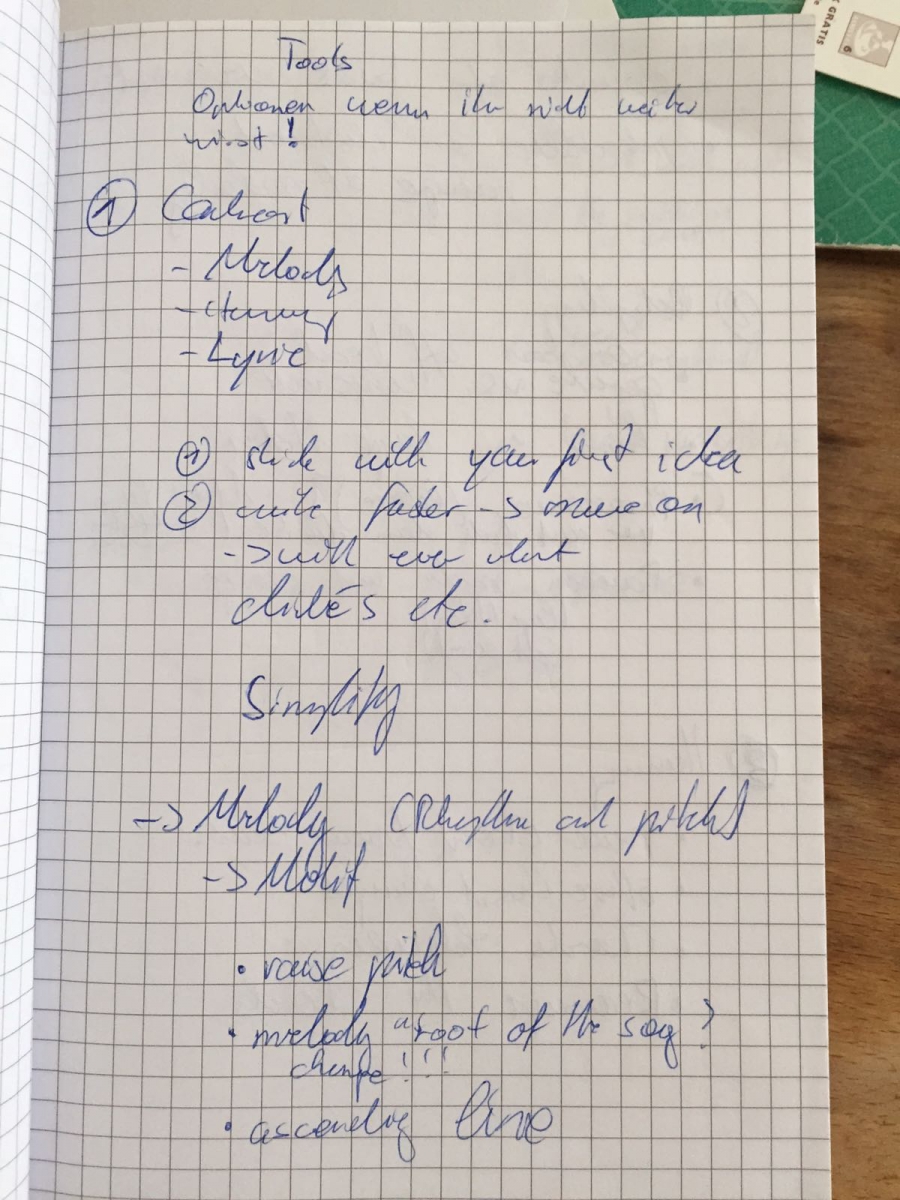 Tools
Optionen wenn ihr nicht weiter
wisst!
① Contrast
- Melody
- Harmony
- Lyric
① stick with your first idea
② write faster -> move on
-> will cut
clichés etc.
Simplify
-> Melody (Rhythm and pitch)
-> Motif
• raise pitch
• melody "root of the song?
change!!!
• ascending line
T GRATIS
6